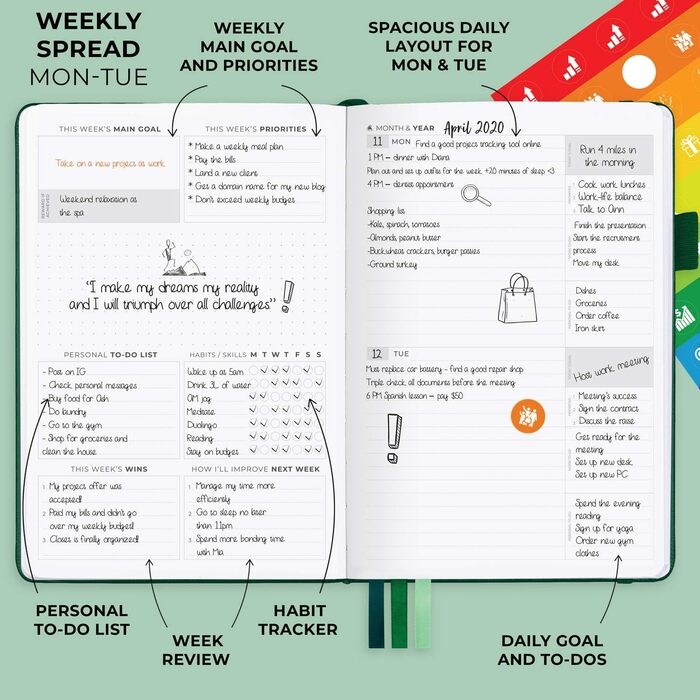 WEEKLY
SPREAD
MON-TUE
WEEKLY
MAIN GOAL
AND PRIORITIES
SPACIOUS DAILY
LAYOUT FOR
MON & TUE
THIS WEEK'S MAIN GOAL
Take on a new project at work
REWARD IF
ACHIEVED
Weekend relaxation at
the spa
THIS WEEK'S PRIORITIES
* Make a weekly meal plan
* Pay the bills
* Land a new client
* Get a domain name for my new blog
* Don't exceed weekly budget
"I make my dreams my reality
and I will triumph over all challenges"
PERSONAL TO-DO LIST
- Post on IG
- Check personal messages
- Buy food for Ash
- Do laundry
- Go to the gym
- Shop for groceries and
clean the house
HABITS / SKILLS M T W T F S S
Wake up at 5am
Drink 3L of water
AM jog
Meditate
Duolingo
Reading
Stay on budget
THIS WEEK'S WINS
1 My project offer was
accepted!
2 Paid my bills and didn't go
over my weekly budget!
3 Closet is finally organized!
HOW I'LL IMPROVE NEXT WEEK
1 Manage my time more
efficiently
2 Go to sleep no later
than 11pm
3 Spend more bonding time
with Mia
MONTH & YEAR April 2020
11 MON Find a good project tracking tool online
1 PM – dinner with Diana
Plan out and set up outfits for the week +20 minutes of sleep <3
4 PM – dentist appointment
Shopping list
-Kale, spinach, tomatoes
-Almonds, peanut butter
-Buckwheat crackers, burger patties
-Ground turkey
Run 4 miles in
the morning
Cook work lunches
Work-life balance
Talk to Ann
Finish the presentation
Start the recruitment
process
Move my desk
Dishes
Groceries
Order coffee
Iron shirt
12 TUE
Must replace car battery - find a good repair shop
Triple check all documents before the meeting
6 PM Spanish lesson – pay $50
Host work meeting
Meeting's success
Sign the contract
Discuss the raise
Get ready for the
meeting
Set up new desk
Set up new PC
Spend the evening
reading
Sign up for yoga
Order new gym
clothes
PERSONAL
TO-DO LIST
WEEK
REVIEW
HABIT
TRACKER
DAILY GOAL
AND TO-DOS